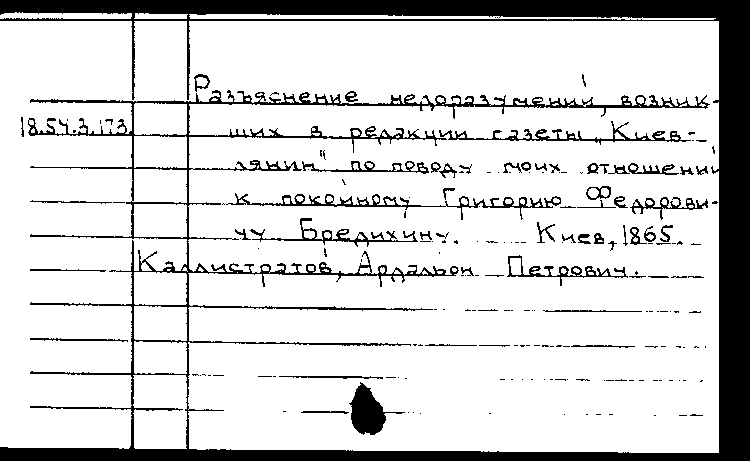 Разъяснение недоразумений, возник-
18.54.3.173. ших в редакции газеты „Киев-
лянин" по поводу моих отношений
к покойному Григорию Федорови-
чу Бредихину. Киев, 1865.
Каллистратов, Ардальон Петрович.